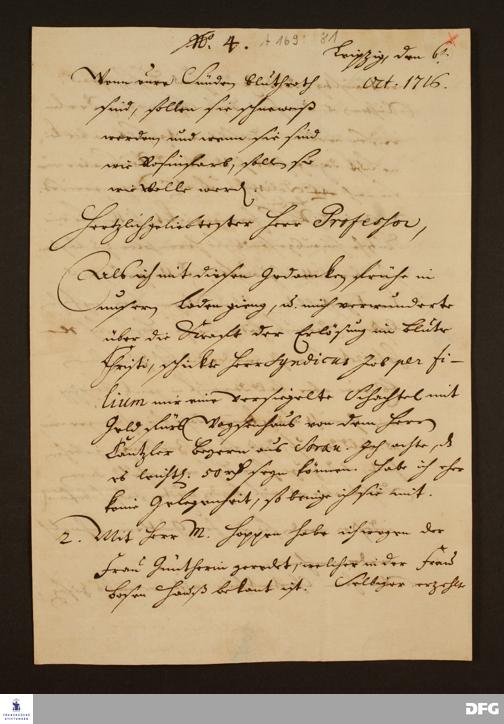 No. 4. A 169 : 81
Leipzig, den 6t.
Wenn eure Sünden bluthroth Oct. 1716.
sind, sollen sie schneeweiß
werden, und wenn sie sind
wie Rosinfarb, soll sie
wie Wolle werd.
Hertzlichgeliebtester Herr Professor,
Als ich mit diesen Gedancken frühe in
unsern Laden gieng, u. mich verwunderte
über die Krafft der Erlösung im Blute
Christi, schickte Herr Syndicus Job per fi-
lium mir eine versiegelte Schachtel mit
Geld fürs Waysenhaus von dem Herrn
Cantzler Beyern aus Sorau. Ich achte, daß
es leichtl. 50 rthl seyn können. Habe ich eher
keine Gelegenheit, so bringe ich sie mit.
2. Mit Herr M. Hoppen habe ich wegen der
Frau Güntherin geredet, welcher in der Frau
Bosen Hauß bekant ist. Selbiger erzehlte
FRANCKESCHE STIFTUNGEN
DFG